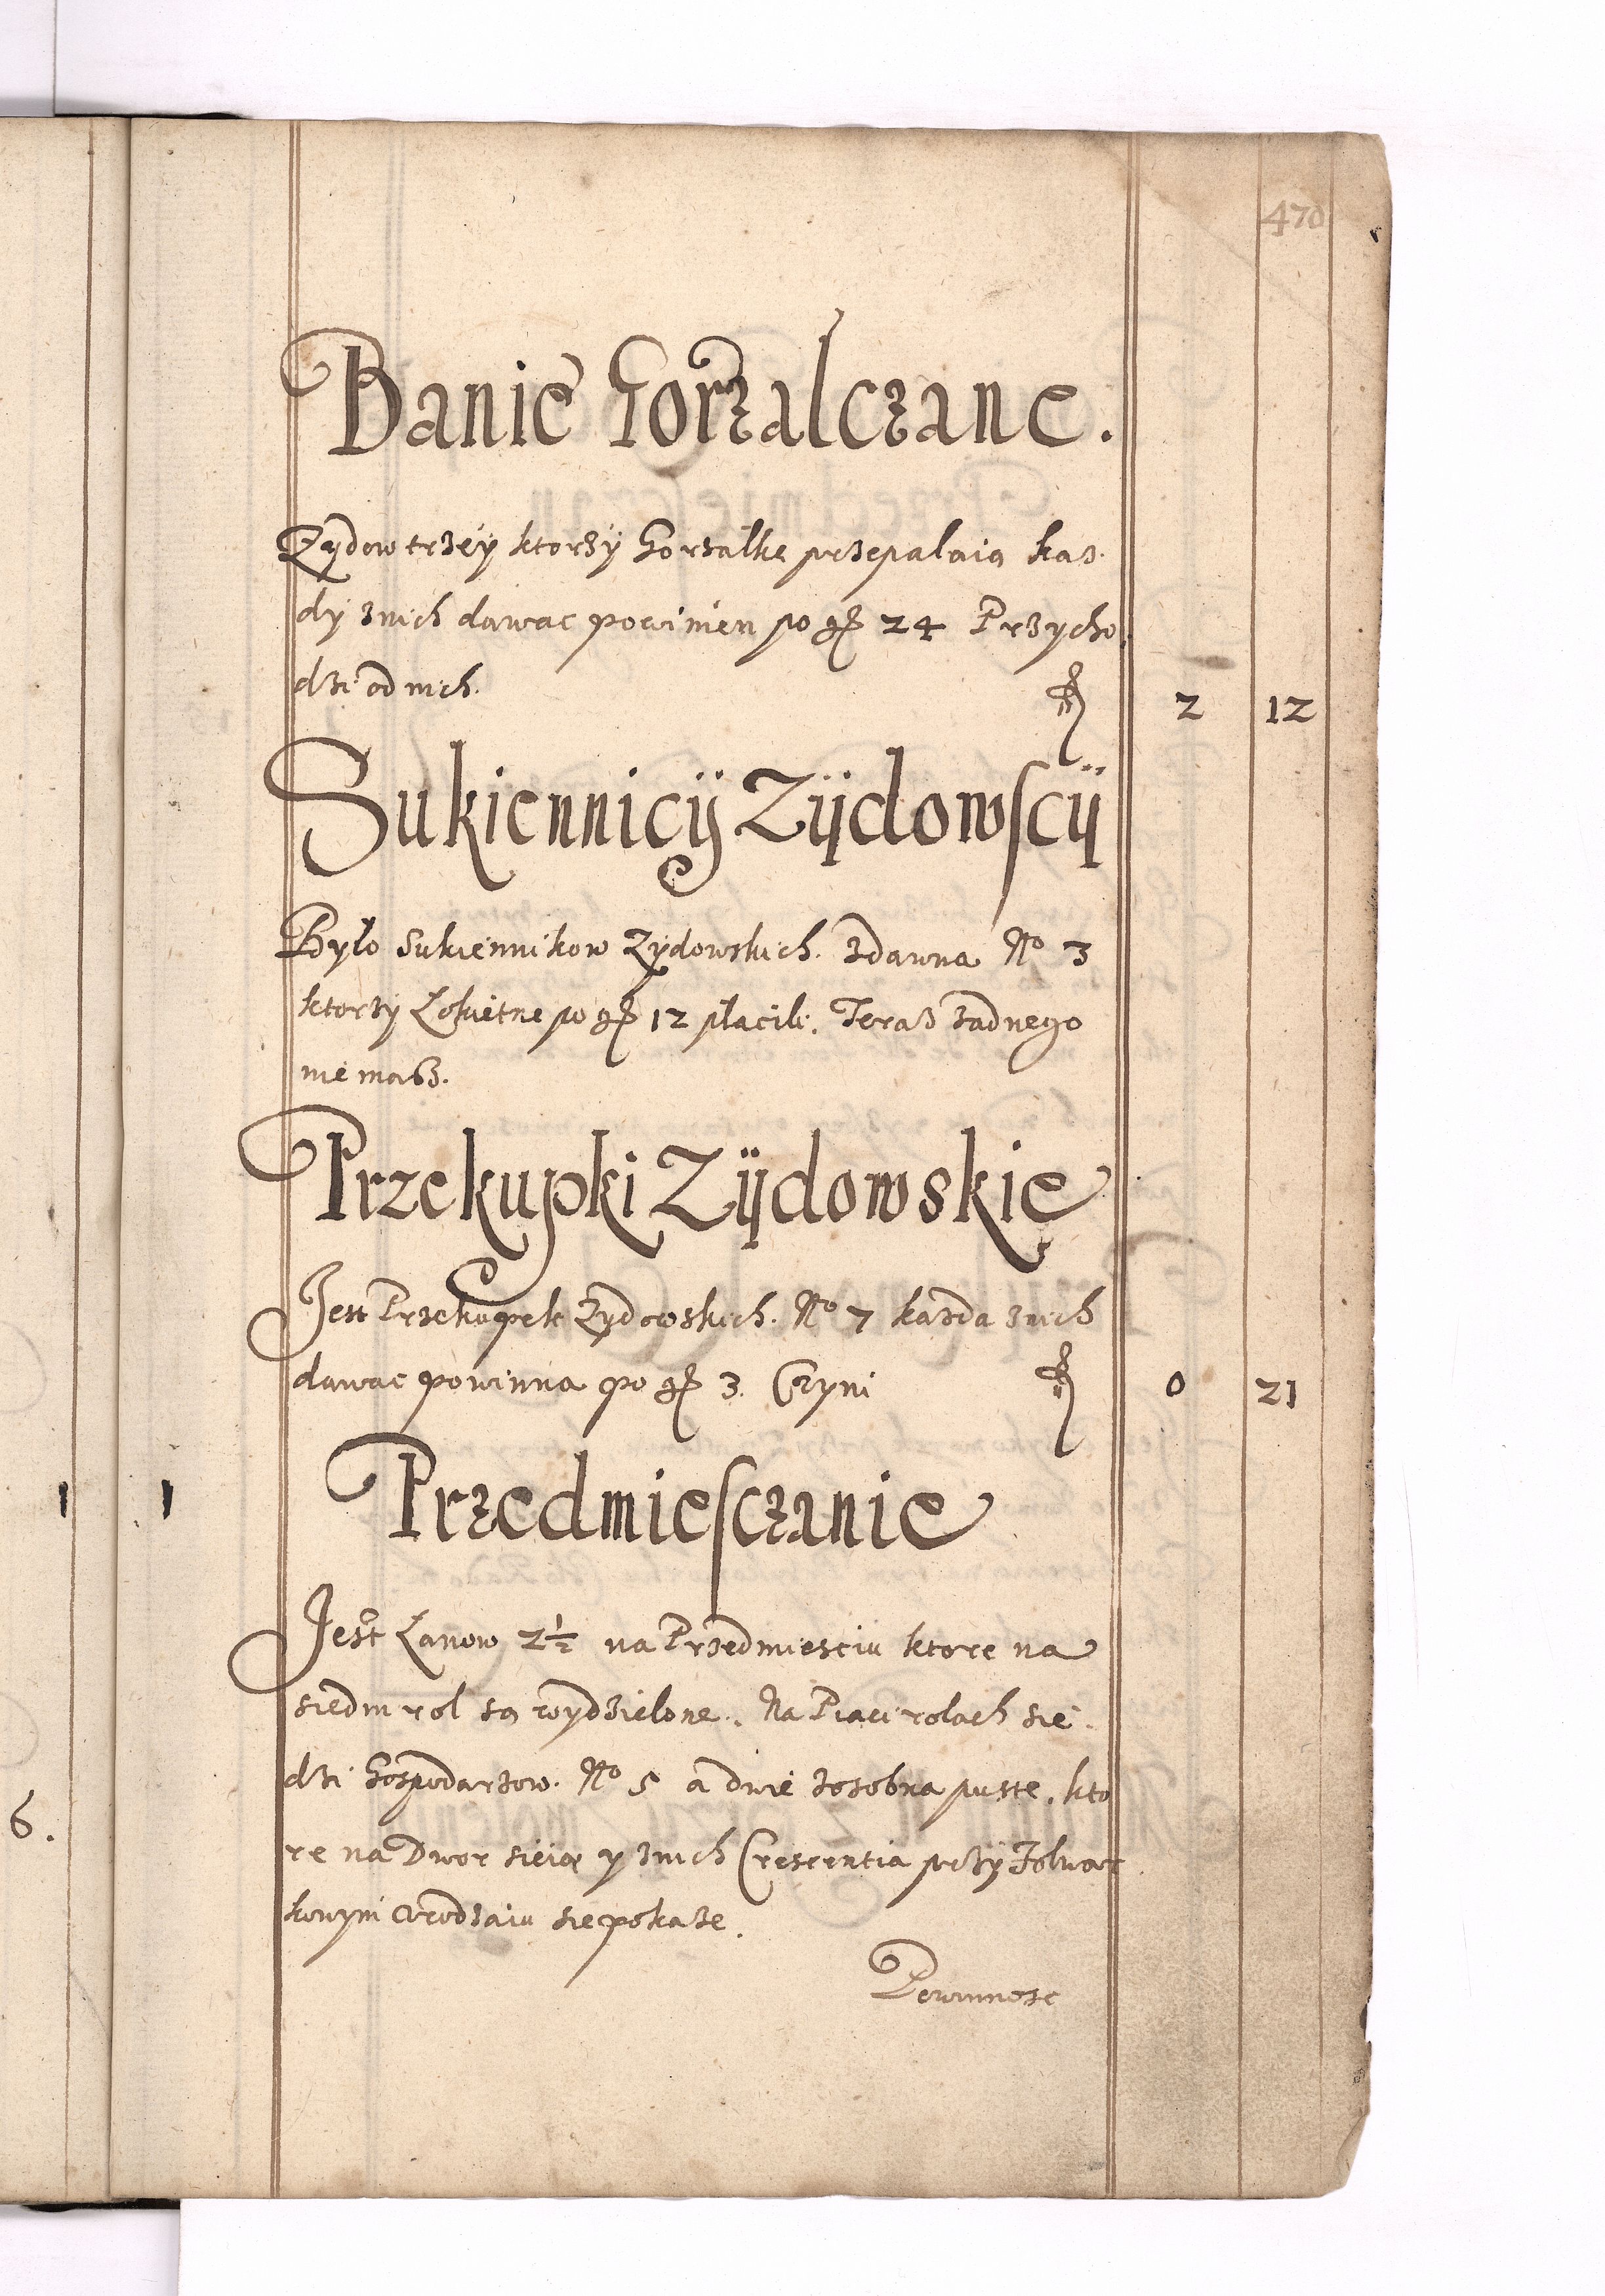 470
Banie Gorzalczane.
Zydow trzey ktorzy Gorzalke przepalaia kaz
dy znich dawac powinien po gr 24 Przycho
dzi od nich. fl 2 12
Sukiennicÿ Zÿdowscÿ
Bylo Sukiennikow Zydowskich. zdawna No 3
ktorzy Lokietne po gr 12 placili. Teraz zadnego
nie masz.
Przekupki Zÿdowskie
Jest Przekupek Zydowskich. No 7 kazda znich
dawac powinna po gr 3. Czyni fl 0 21
Przedmiesczanie
Jest Lanow 2½ na Przedmiesciu ktore na
siedm rol sa wydzielone. Na Piaci rolach sie
dzi Gospodarzow. No 5 a dwie zosobna puste. kto
re na Dwor sieia y znich Crescentia przy Folwar
kowym Urodzaiu sie pokaze.
Powinnosc
6.